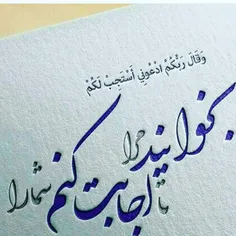 وَقَالَ رَبُّكُمُ ادْعُونِي أَسْتَجِبْ لَكُمْ
بخوانید مرا
تا اجابت کنم شمارا